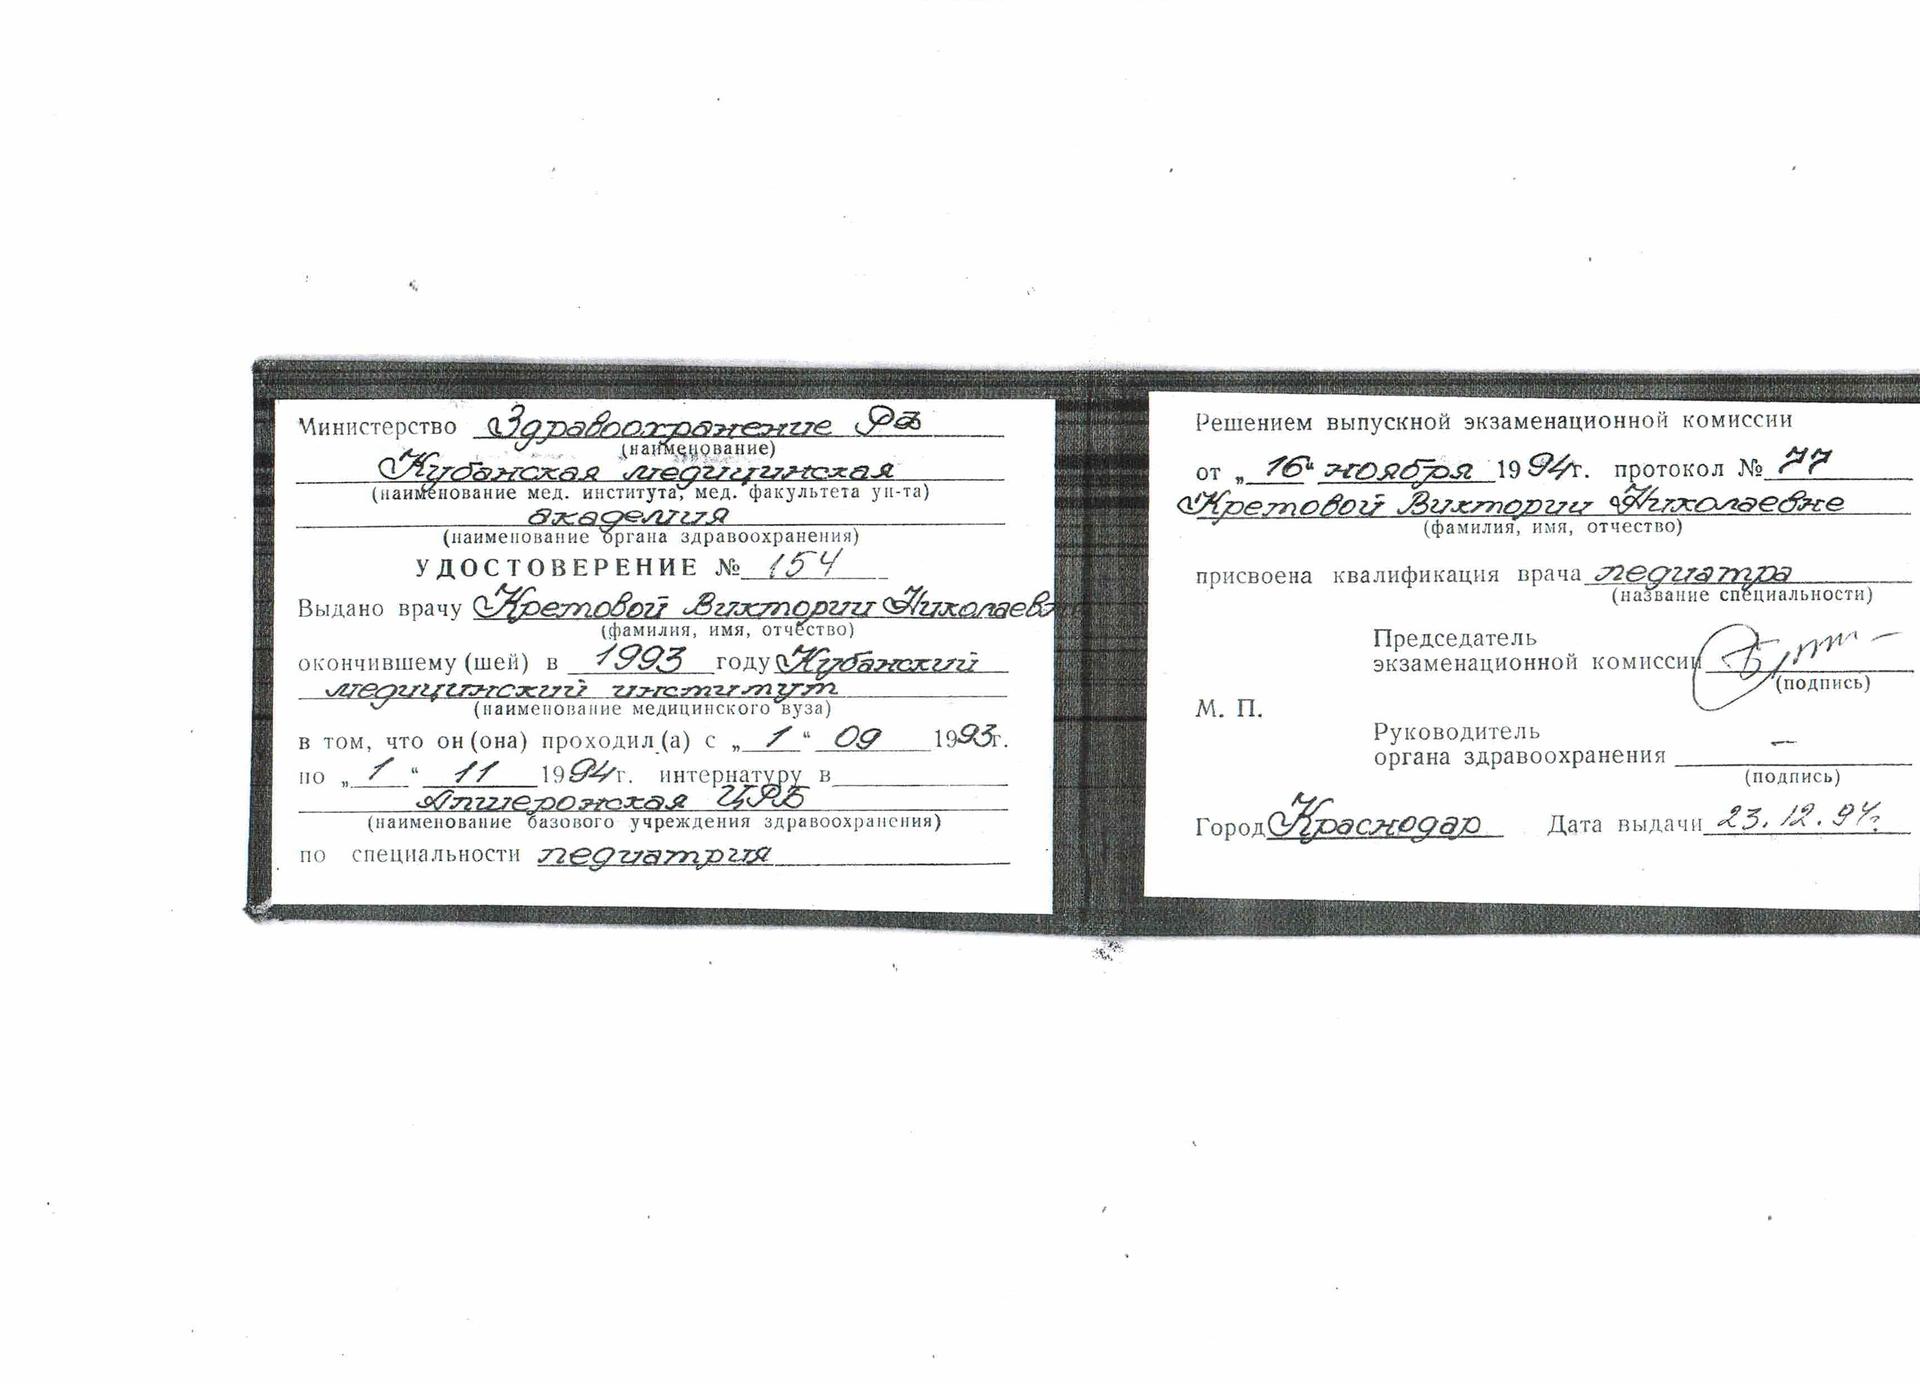 Министерство Здравоохранение РФ
(наименование)
Кубанская медицинская
(наименование мед. института, мед. факультета ун-та)
академия
(наименование органа здравоохранения)
УДОСТОВЕРЕНИЕ № 154
Выдано врачу Кретовой Виктории Николаевне
(фамилия, имя, отчество)
окончившему (шей) в 1993 году Кубанский
медицинский институт
(наименование медицинского вуза)
в том, что он (она) проходил (а) с „ 1 “ 09 1993г.
по „ 1 “ 11 1994г. интернатуру в
Апшеронская ЦРБ
(наименование базового учреждения здравоохранения)
по специальности педиатрия
Решением выпускной экзаменационной комиссии
от „ 16 “ ноября 1994г. протокол № 77
Кретовой Виктории Николаевне
(фамилия, имя, отчество)
присвоена квалификация врача педиатра
(название специальности)
Председатель
экзаменационной комиссии
(подпись)
М. П.
Руководитель
органа здравоохранения –
(подпись)
Город Краснодар Дата выдачи 23.12.94г.